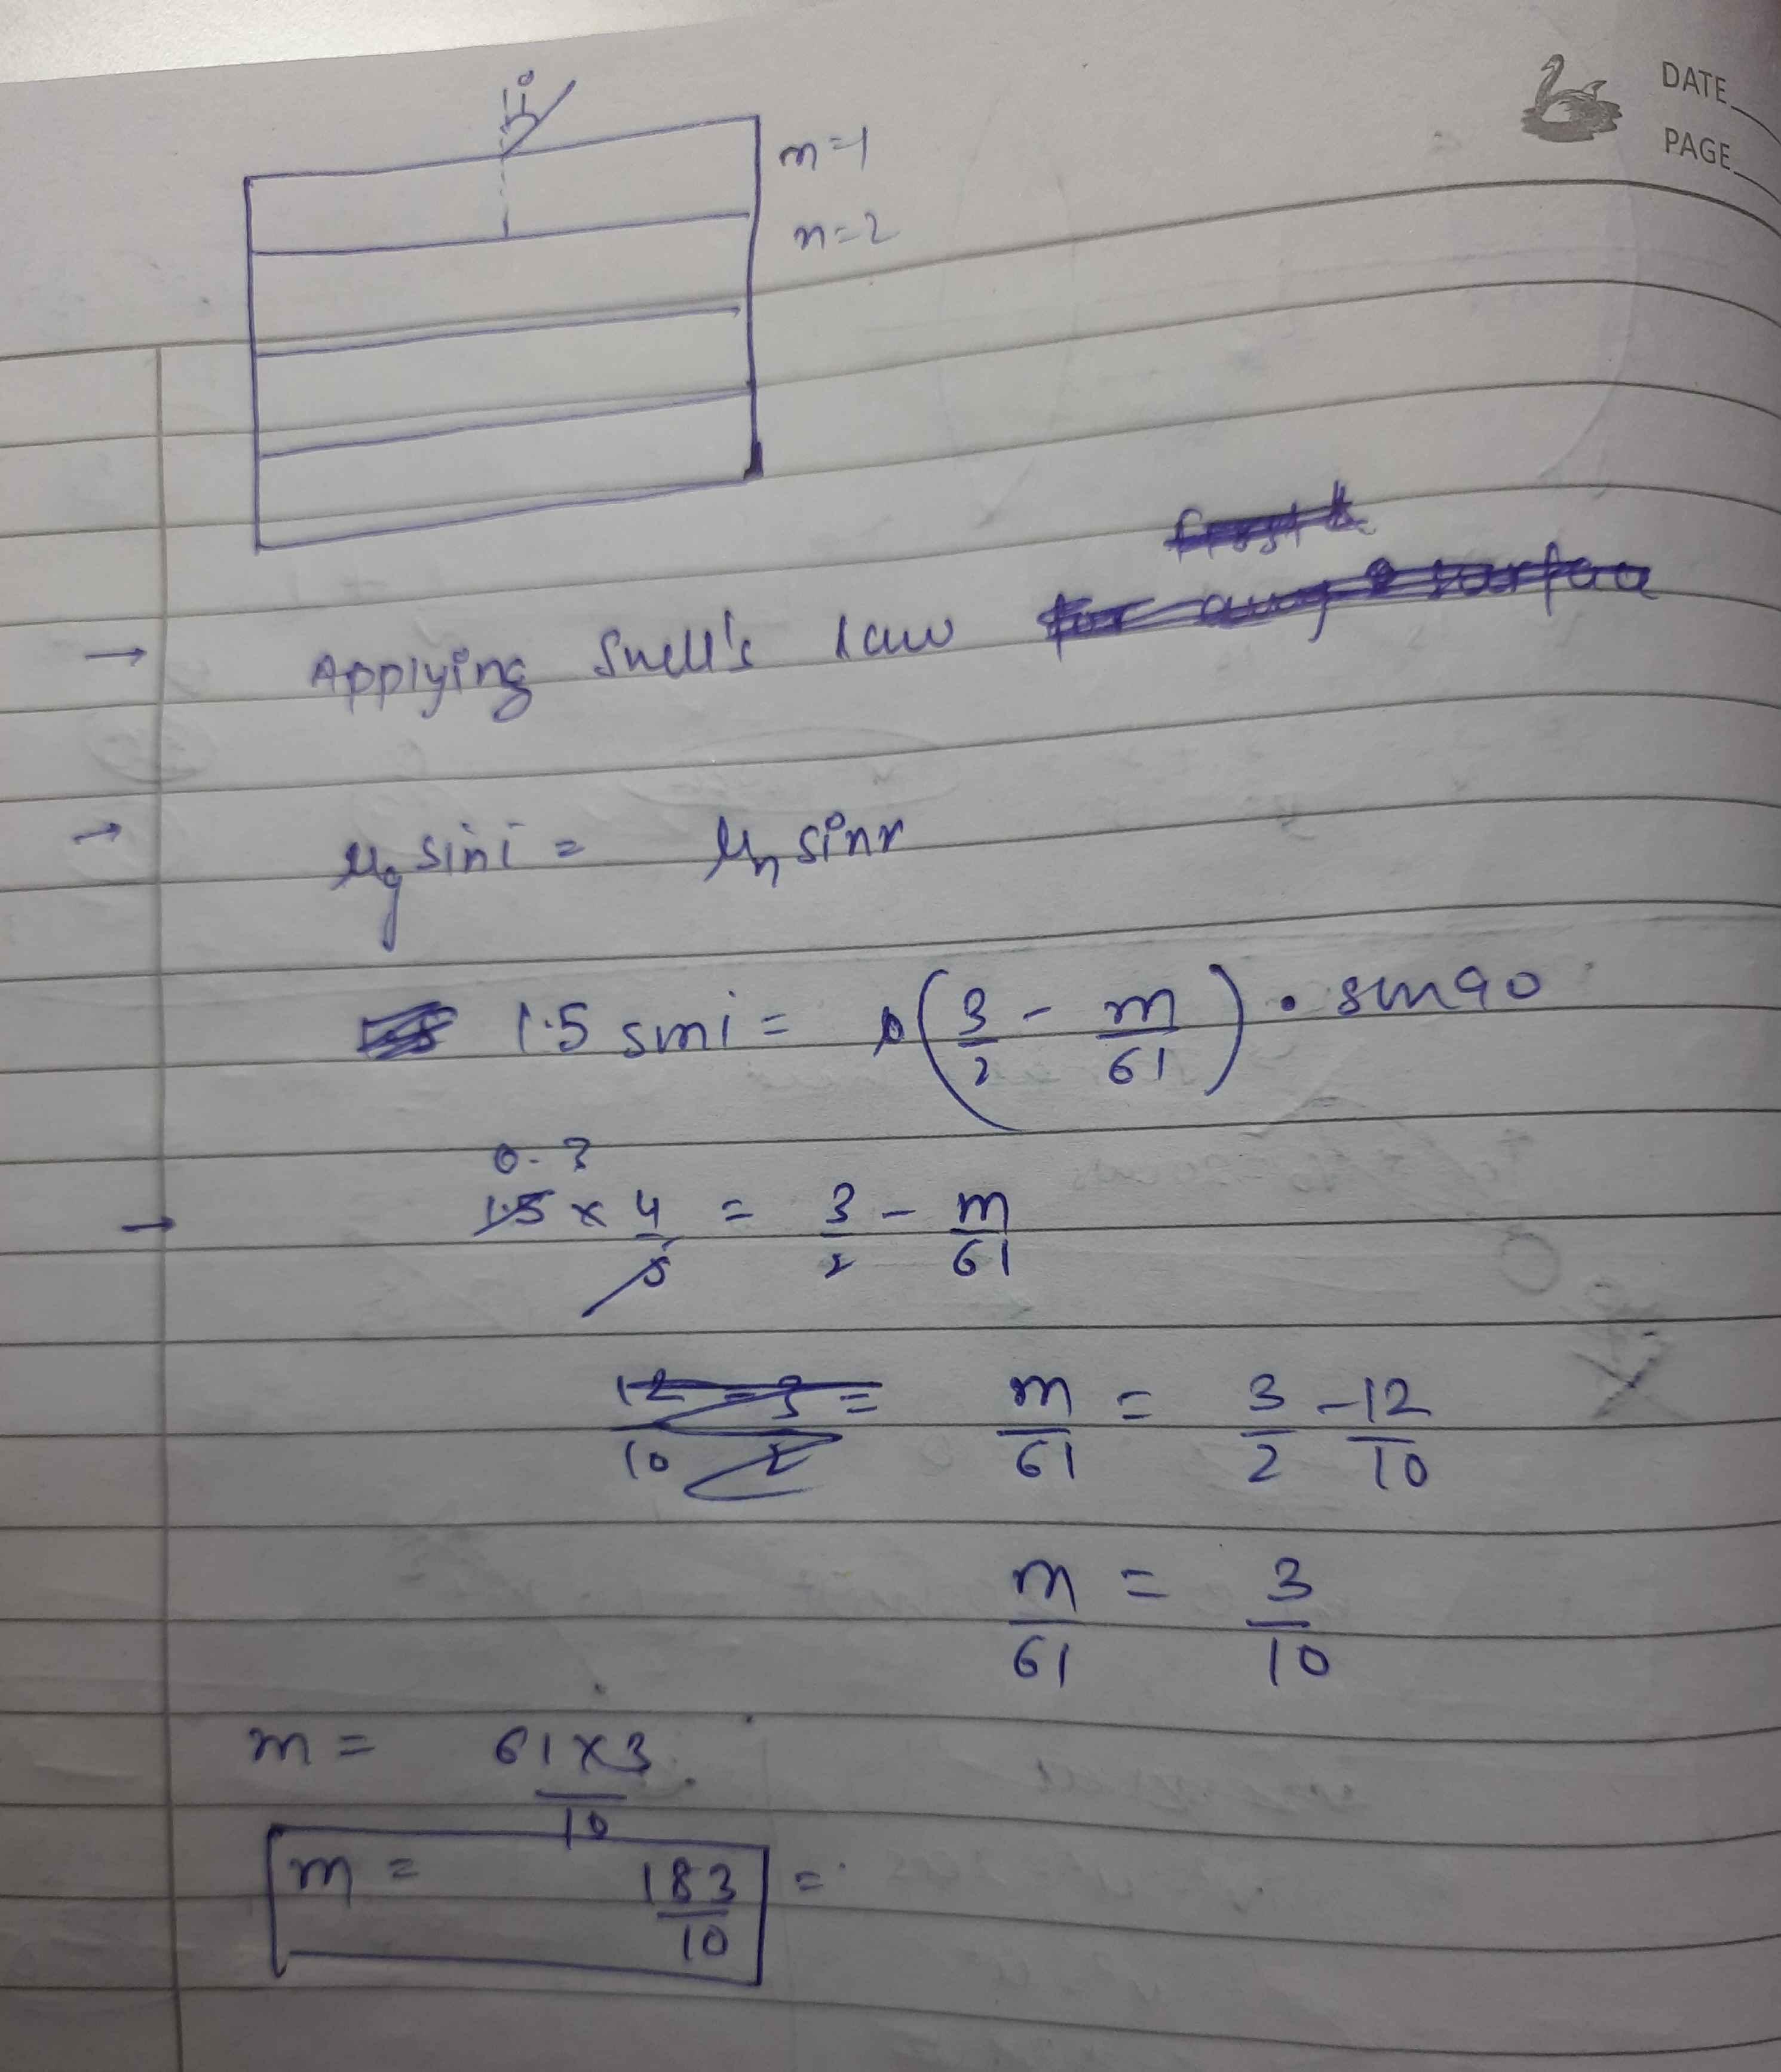 DATE
PAGE
i
m=1
n=2
→ Applying Snell's law
→ μg sin i = μn sin r
1.5 sin i = (3/2 - m/61) . sin 90
0.3
→ 1.5 x 4/5 = 3/2 - m/61
m/61 = 3/2 - 12/10
m/61 = 3/10
m = 61x3/10
m = 183/10 =